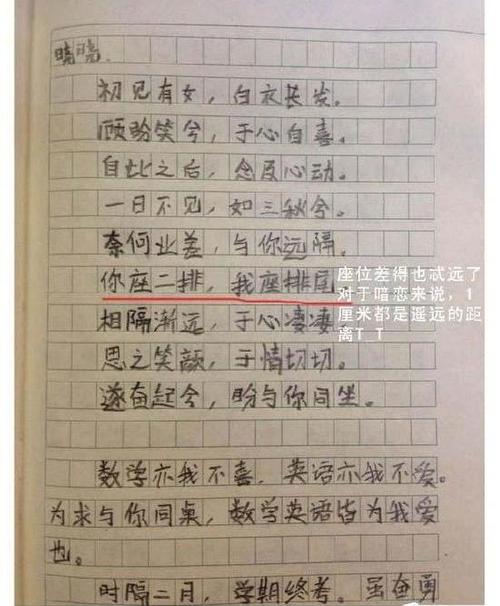 晓晓.
初见有女，白衣长发。
顾盼笑兮，于心自喜。
自此之后，念及心动。
一日不见，如三秋兮。
奈何业差，与你远隔。
你座二排，我座排尾。
座位差得也忒远了
对于暗恋来说，1
厘米都是遥远的距
离T_T
相隔渐远，于心凄凄
思之笑颜，于情切切。
遂奋起兮，盼与你同坐。
数学亦我不喜，英语亦我不爱。
为求与你同桌，数学英语皆为我爱
也。
时隔二月，学期终考。虽奋勇